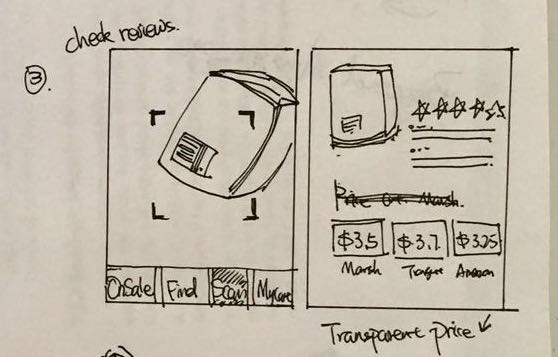 check reviews.
3
OnSale Find Scan MyCart
Price at Marsh.
$3.5 $3.7 $3.25
Marsh Target Amazon
Transparent price